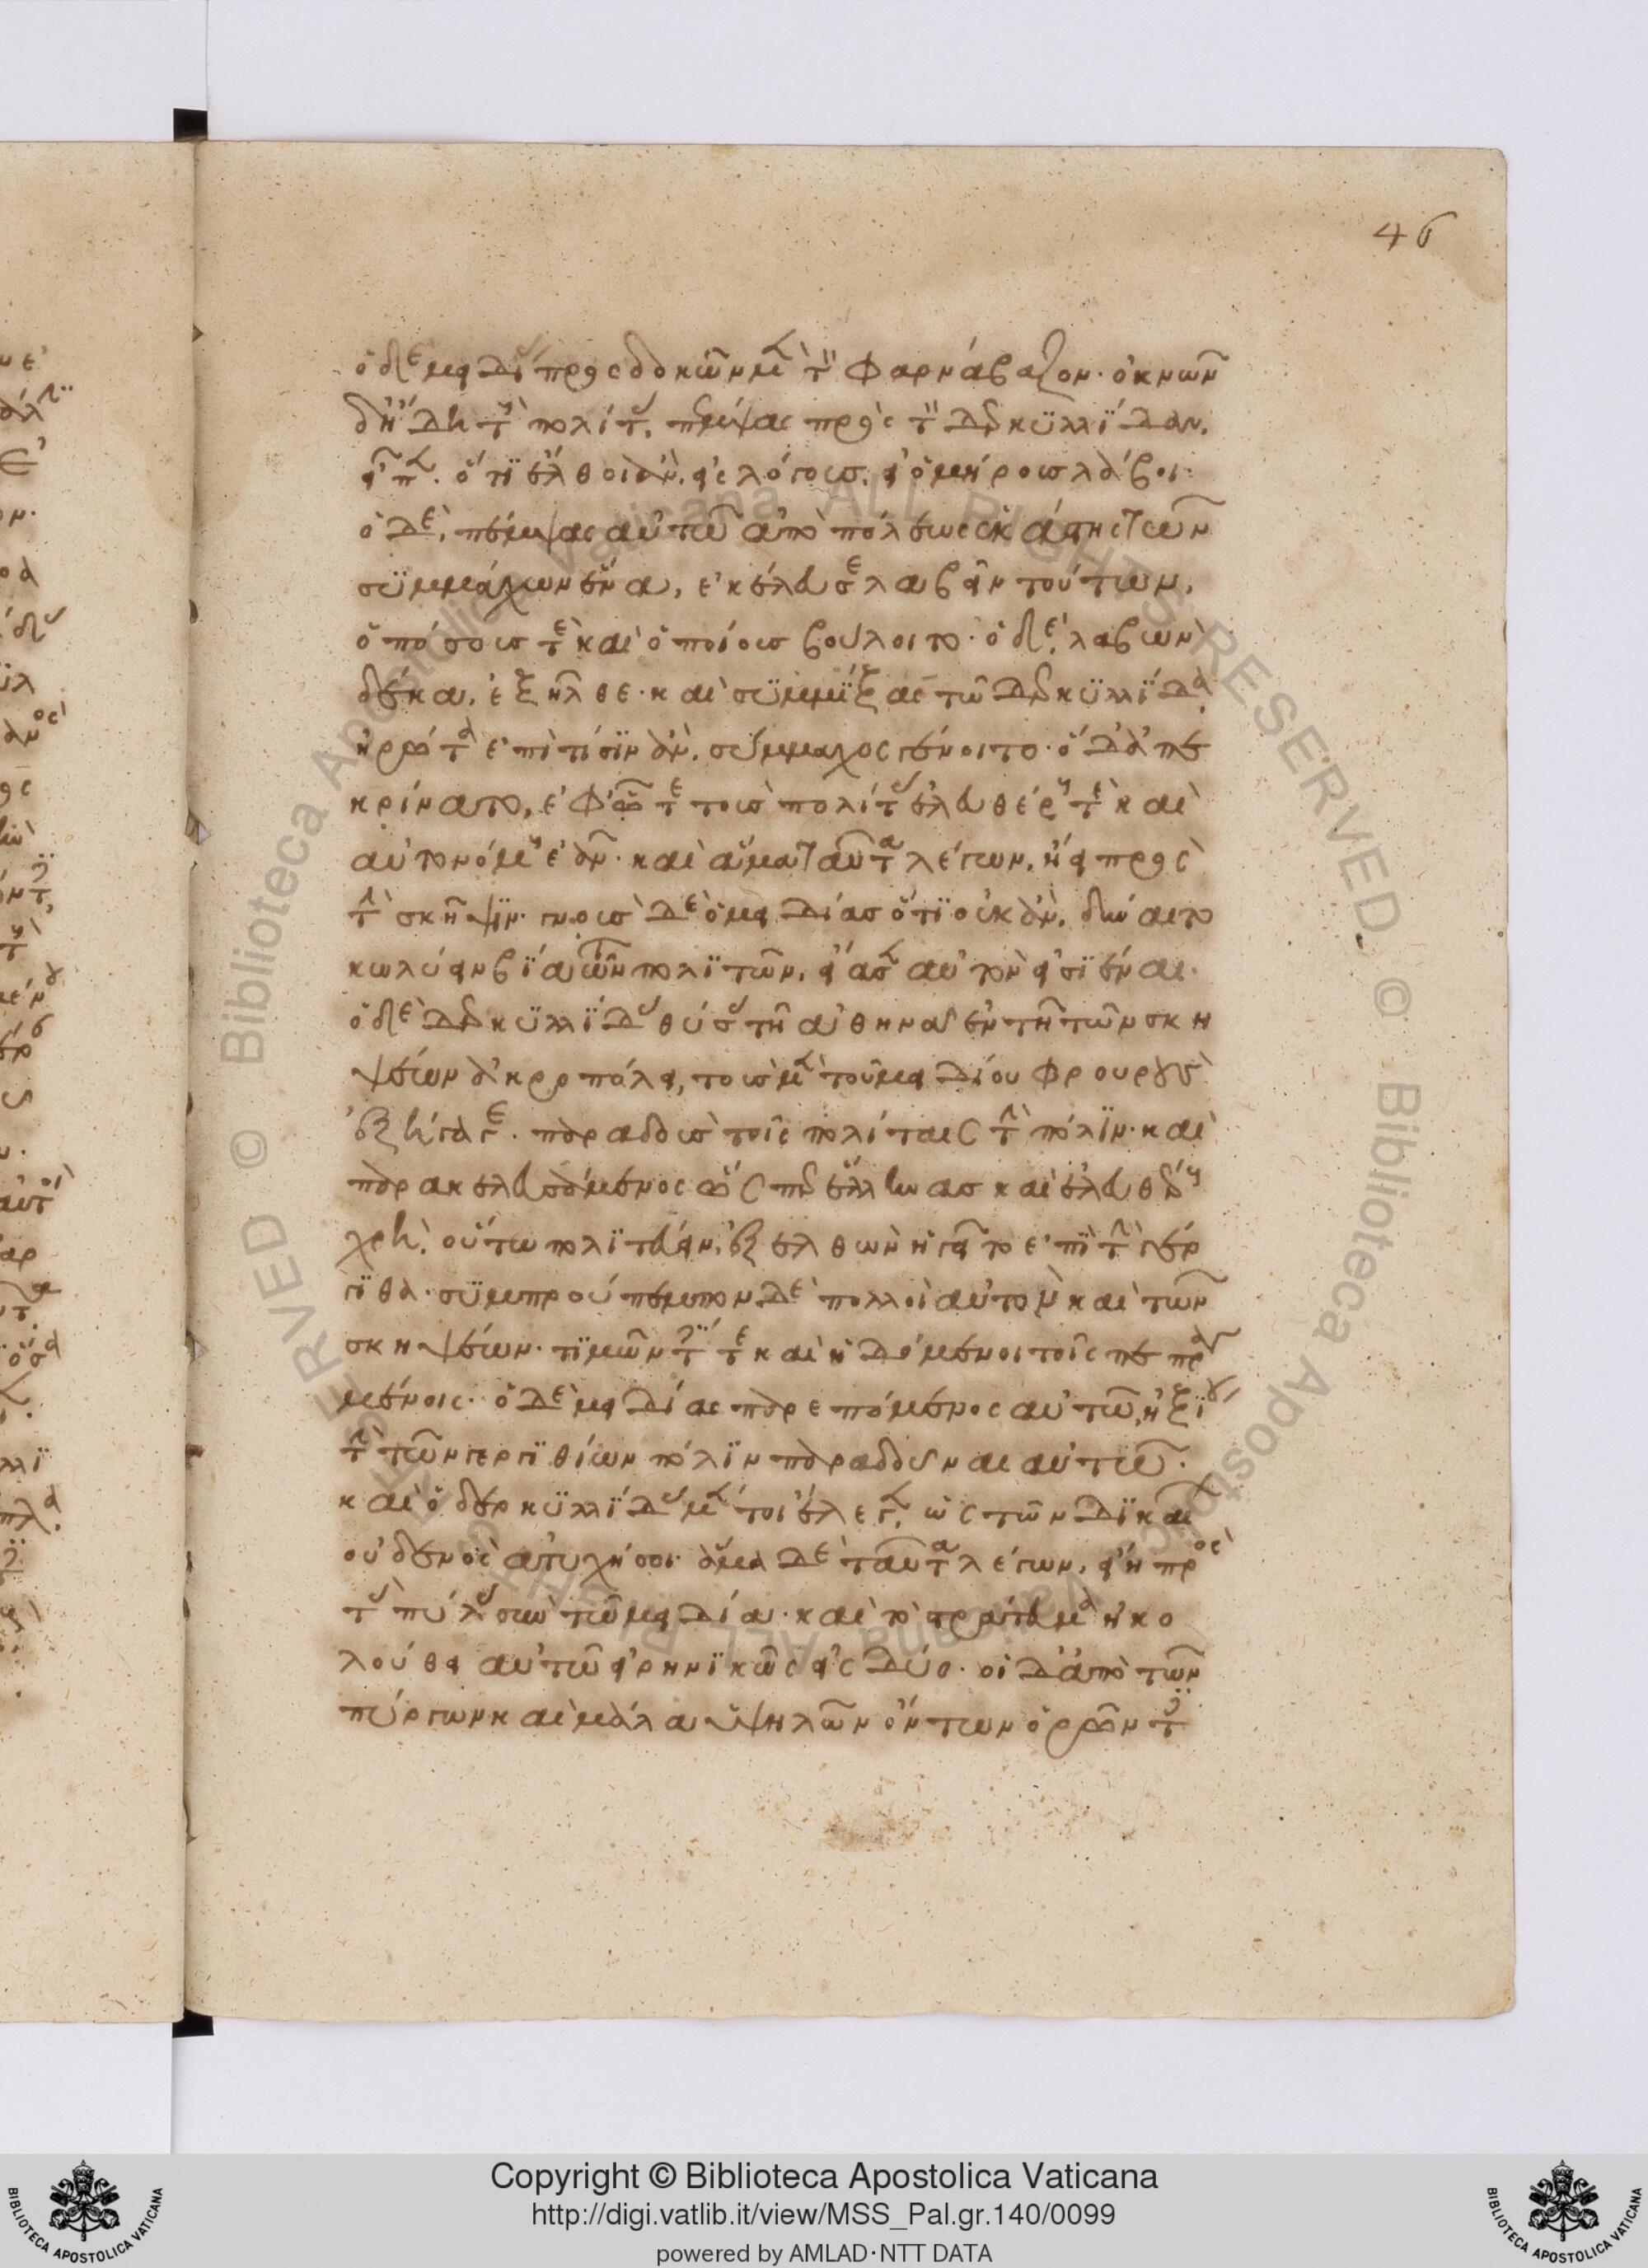 46
ὁ δὲ μειδίας προσδοκῶν μὲν τὸν Φαρνάβαζον· ὀκνῶν
δ' ἤδη τοὺς πολίτας, πέμψας πρὸς τὸν Δερκυλλίδαν,
εἶπεν· ὅτι ἔλθοι ἂν εἰς λόγους, εἰ ὁμήρους λάβοι·
ὁ δὲ, πέμψας αὐτῶ ἀπὸ πόλεως ἑκάστης τῶν
συμμάχων ἕνα, ἐκέλευσε λαβεῖν τούτων,
ὁπόσους τὲ καὶ ὁποίους βούλοιτο· ὁ δὲ, λαβὼν
δέκα, ἐξῆλθε· καὶ συμμίξας τῶ Δερκυλλίδα,
ἠρώτα ἐπὶ τίσιν ἂν, σύμμαχος γένοιτο· ὁ δ' ἀπε
κρίνατο, ἐφ' ὧ τε τοὺς πολίτας ἐλευθέρους τὲ καὶ
αὐτονόμους ἐᾶν· καὶ ἅμα ταῦτα λέγων, ἤει πρὸς
τὴν σκῆψιν· γνοὺς δὲ ὁ μειδίας ὅτι οὐκ ἂν, δύναιτο
κωλύειν βία τῶν πολιτῶν, εἴασεν αὐτὸν εἰσιέναι·
ὁ δὲ Δερκυλλίδας θύσας τῆ ἀθηνᾶ ἐν τῆ τῶν σκη
ψίων ἀκροπόλει, τοὺς μὲν τοῦ μειδίου φρουροὺς
ἐξήγαγε· παραδοὺς τοῖς πολίταις τὴν πόλιν· καὶ
παρακελευσάμενος ὥσπερ ἕλληνας καὶ ἐλευθέρους
χρὴ, οὕτω πολιτεύειν, ἐξελθὼν ἡγεῖτο ἐπὶ τὴν γέρ
γιθα· συμπρούπεμπον δὲ πολλοὶ αὐτὸν καὶ τῶν
σκηψίων· τιμῶντές τε καὶ ἡδόμενοι τοῖς πεπραγ
μένοις· ὁ δὲ μειδίας παρεπόμενος αὐτῶ, ἠξίου
τὴν τῶν γεργιθίων πόλιν παραδοῦναι αὐτῶ·
καὶ ὁ δερκυλλίδας μέντοι ἔλεγεν, ὡς τῶν δικαίων
οὐδενὸς ἀτυχήσοι· ἅμα δὲ ταῦτα λέγων, ἤει πρὸς
τὰς πύλας σὺν τῶ μειδία· καὶ τὸ στράτευμα ἠκο
λούθει αὐτῶ εἰρηνικῶς εἰς δύο· οἱ δ' ἀπὸ τῶν
πύργων καὶ μάλα ὑψηλῶν ὄντων ὁρῶντες
Copyright © Biblioteca Apostolica Vaticana
http://digi.vatlib.it/view/MSS_Pal.gr.140/0099
powered by AMLAD·NTT DATA